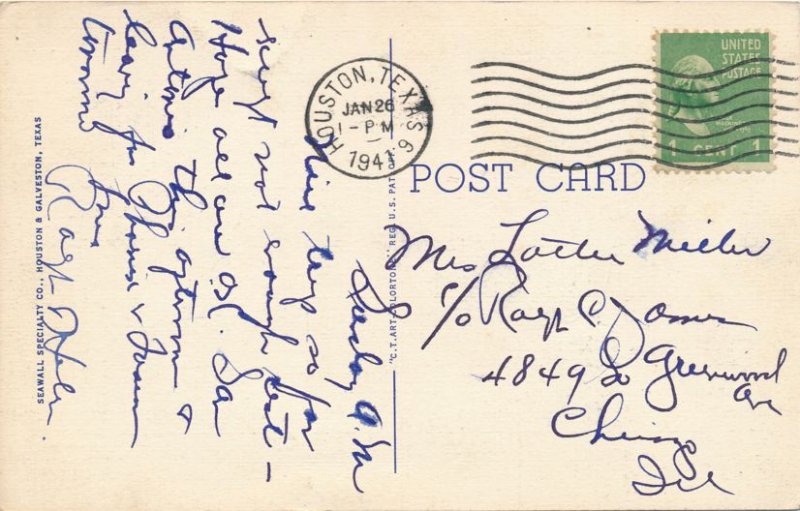 HOUSTON, TEXAS
JAN 26
1 - PM
1941
9
UNITED
STATES
POSTAGE
1 CENT 1
POST CARD
Mrs Lottie Miller
c/o Ralph C. Jones
4849 So Greenwood
Ave
Chicago
Ill
Sunday A.M
Nice trip so far
not enough rest –
Hope all are OK. San
Antonio this afternoon &
leaving for Phoenix &
Tomorrow
Love
Ralph & Helen.
"C.T. ART-COLORTONE" REG. U.S. PAT.
SEAWALL SPECIALTY CO., HOUSTON & GALVESTON, TEXAS